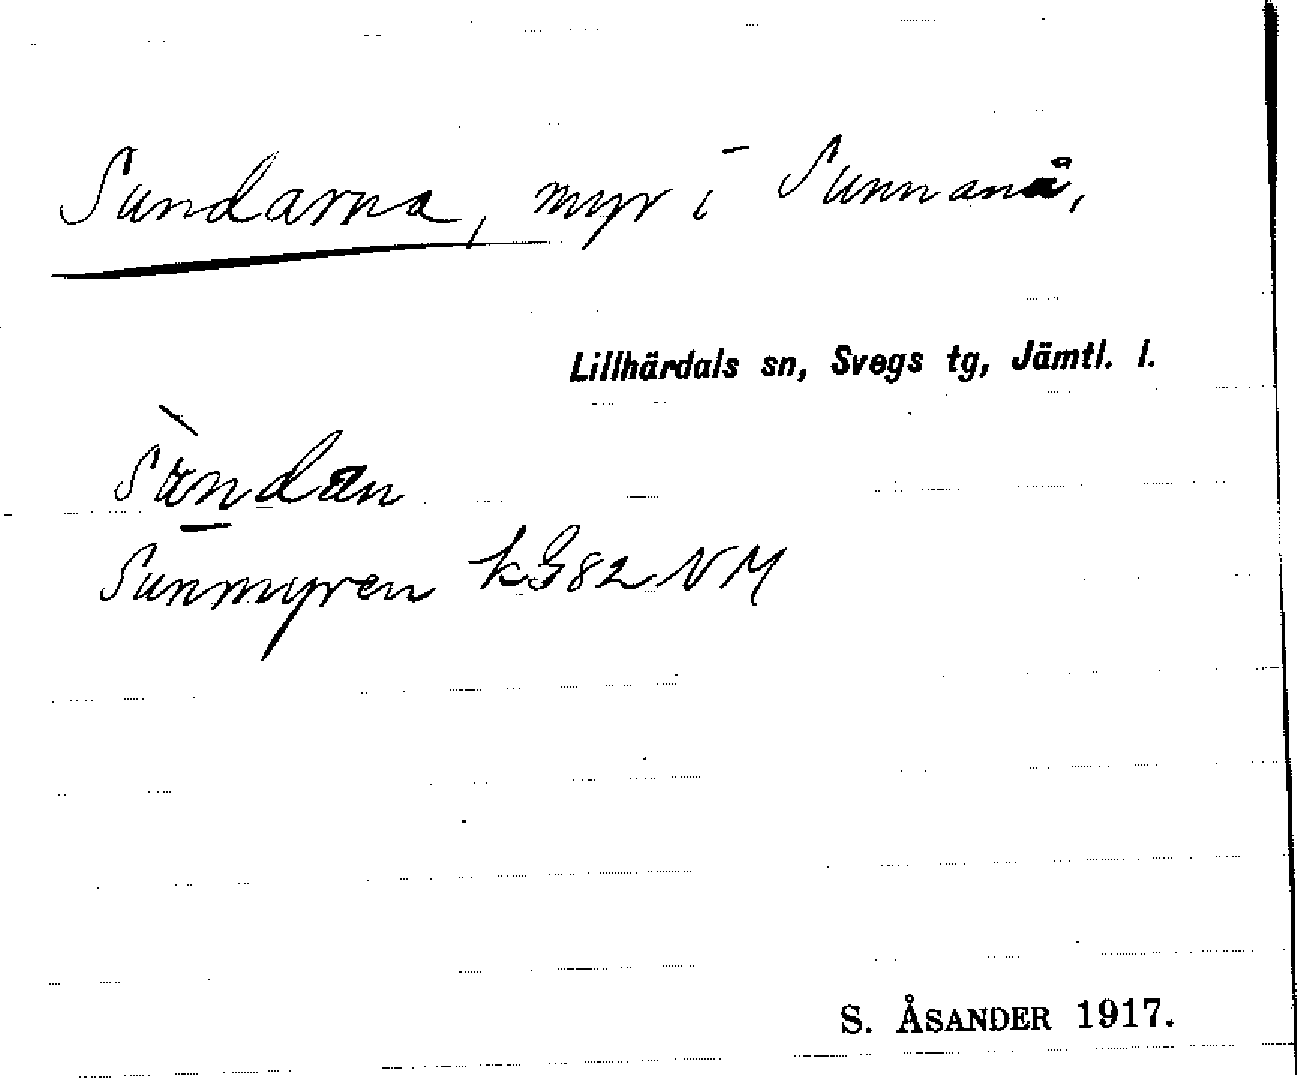 Sundarna, myr i Sunnanå,
Lillhärdals sn, Svegs tg, Jämtl. l.
Sändan
Sunmyren kG82 NM
S. ÅSANDER 1917.